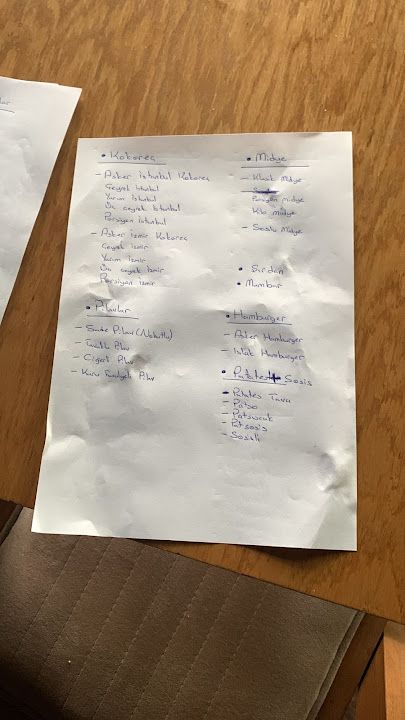 lar
• Kokoreç
- Asker İstanbul Kokoreç
Çeyrek İstanbul
Yarım İstanbul
Üç çeyrek İstanbul
Porsiyon İstanbul
- Asker İzmir Kokoreç
Çeyrek İzmir
Yarım İzmir
Üç çeyrek İzmir
Porsiyon İzmir
• Pilavlar
- Sade Pilav (Nohutlu)
- Tavuklu Pilav
- Ciğerli Pilav
- Kuru Fasulyeli Pilav
• Midye
- Klasik Midye
Porsiyon midye
Kilo midye
- Soslu Midye
• Şırdan
• Mumbar
• Hamburger
- Asker Hamburger
- Islak Hamburger
• Patates + Sosis
- Patates Tava
- Patso
- Patsucuk
- Patsosis
- Sosisli